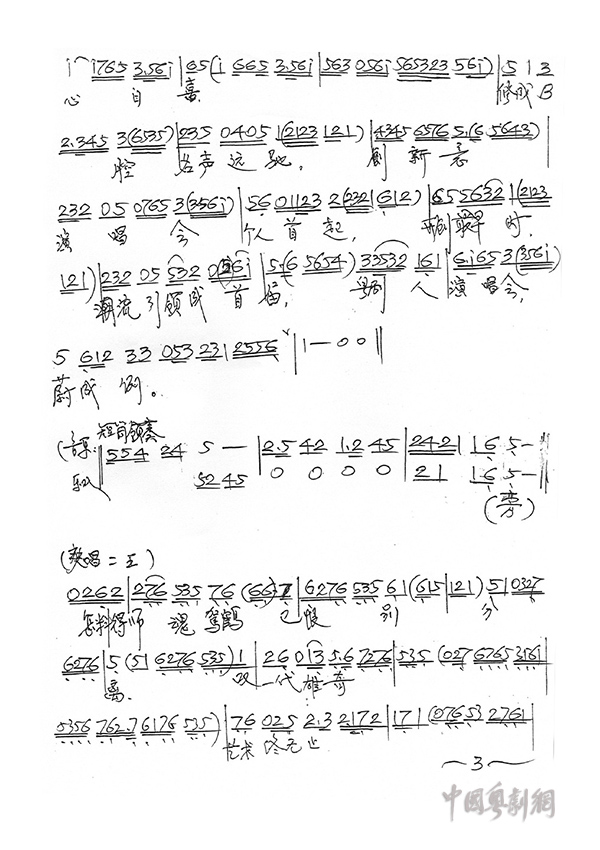 i i765 3.56i | 65 (i 6665 3.56i | 563 056i 565323 56i) | 5 1 3
心 自 喜. 修成 B
2.345 3(6535) | 235 0405 1(2123 121) | 4345 6576 5.(6 5643) |
腔 名声远驰. 创新意
232 05 0765 3(356i) | 56 01123 2(232 | 612) | 655632 1(2123
演唱会 个人首起, 时.
121) | 232 05 532 | 5.(6 5654) | 33532 161 | 6i653(356i)
潮流引领成首届, 粤剧人演唱会,
5 612 33 053 23 | 2556 | 1 — 0 0 ||
蔚成例。
554 24 5 — | 2.5 42 1.2 45 | 242 | 16 5 —
5245 0 0 0 0 21 16 5 —
0262 | 276 535 76 | 6276 535 61 (615 | 121) 51 0327
怎料得师魂驾鹤 已恨别分
6276 | 5 (51 6276 535) 1 | 26 013 5.6 7276 | 535 (027 6765 356i
离. 一代雄奇
5356 762.7 6176 535) | 76 025 2.3 2172 | 171 (07653 2761
艺术
～3～
中國粵劇網